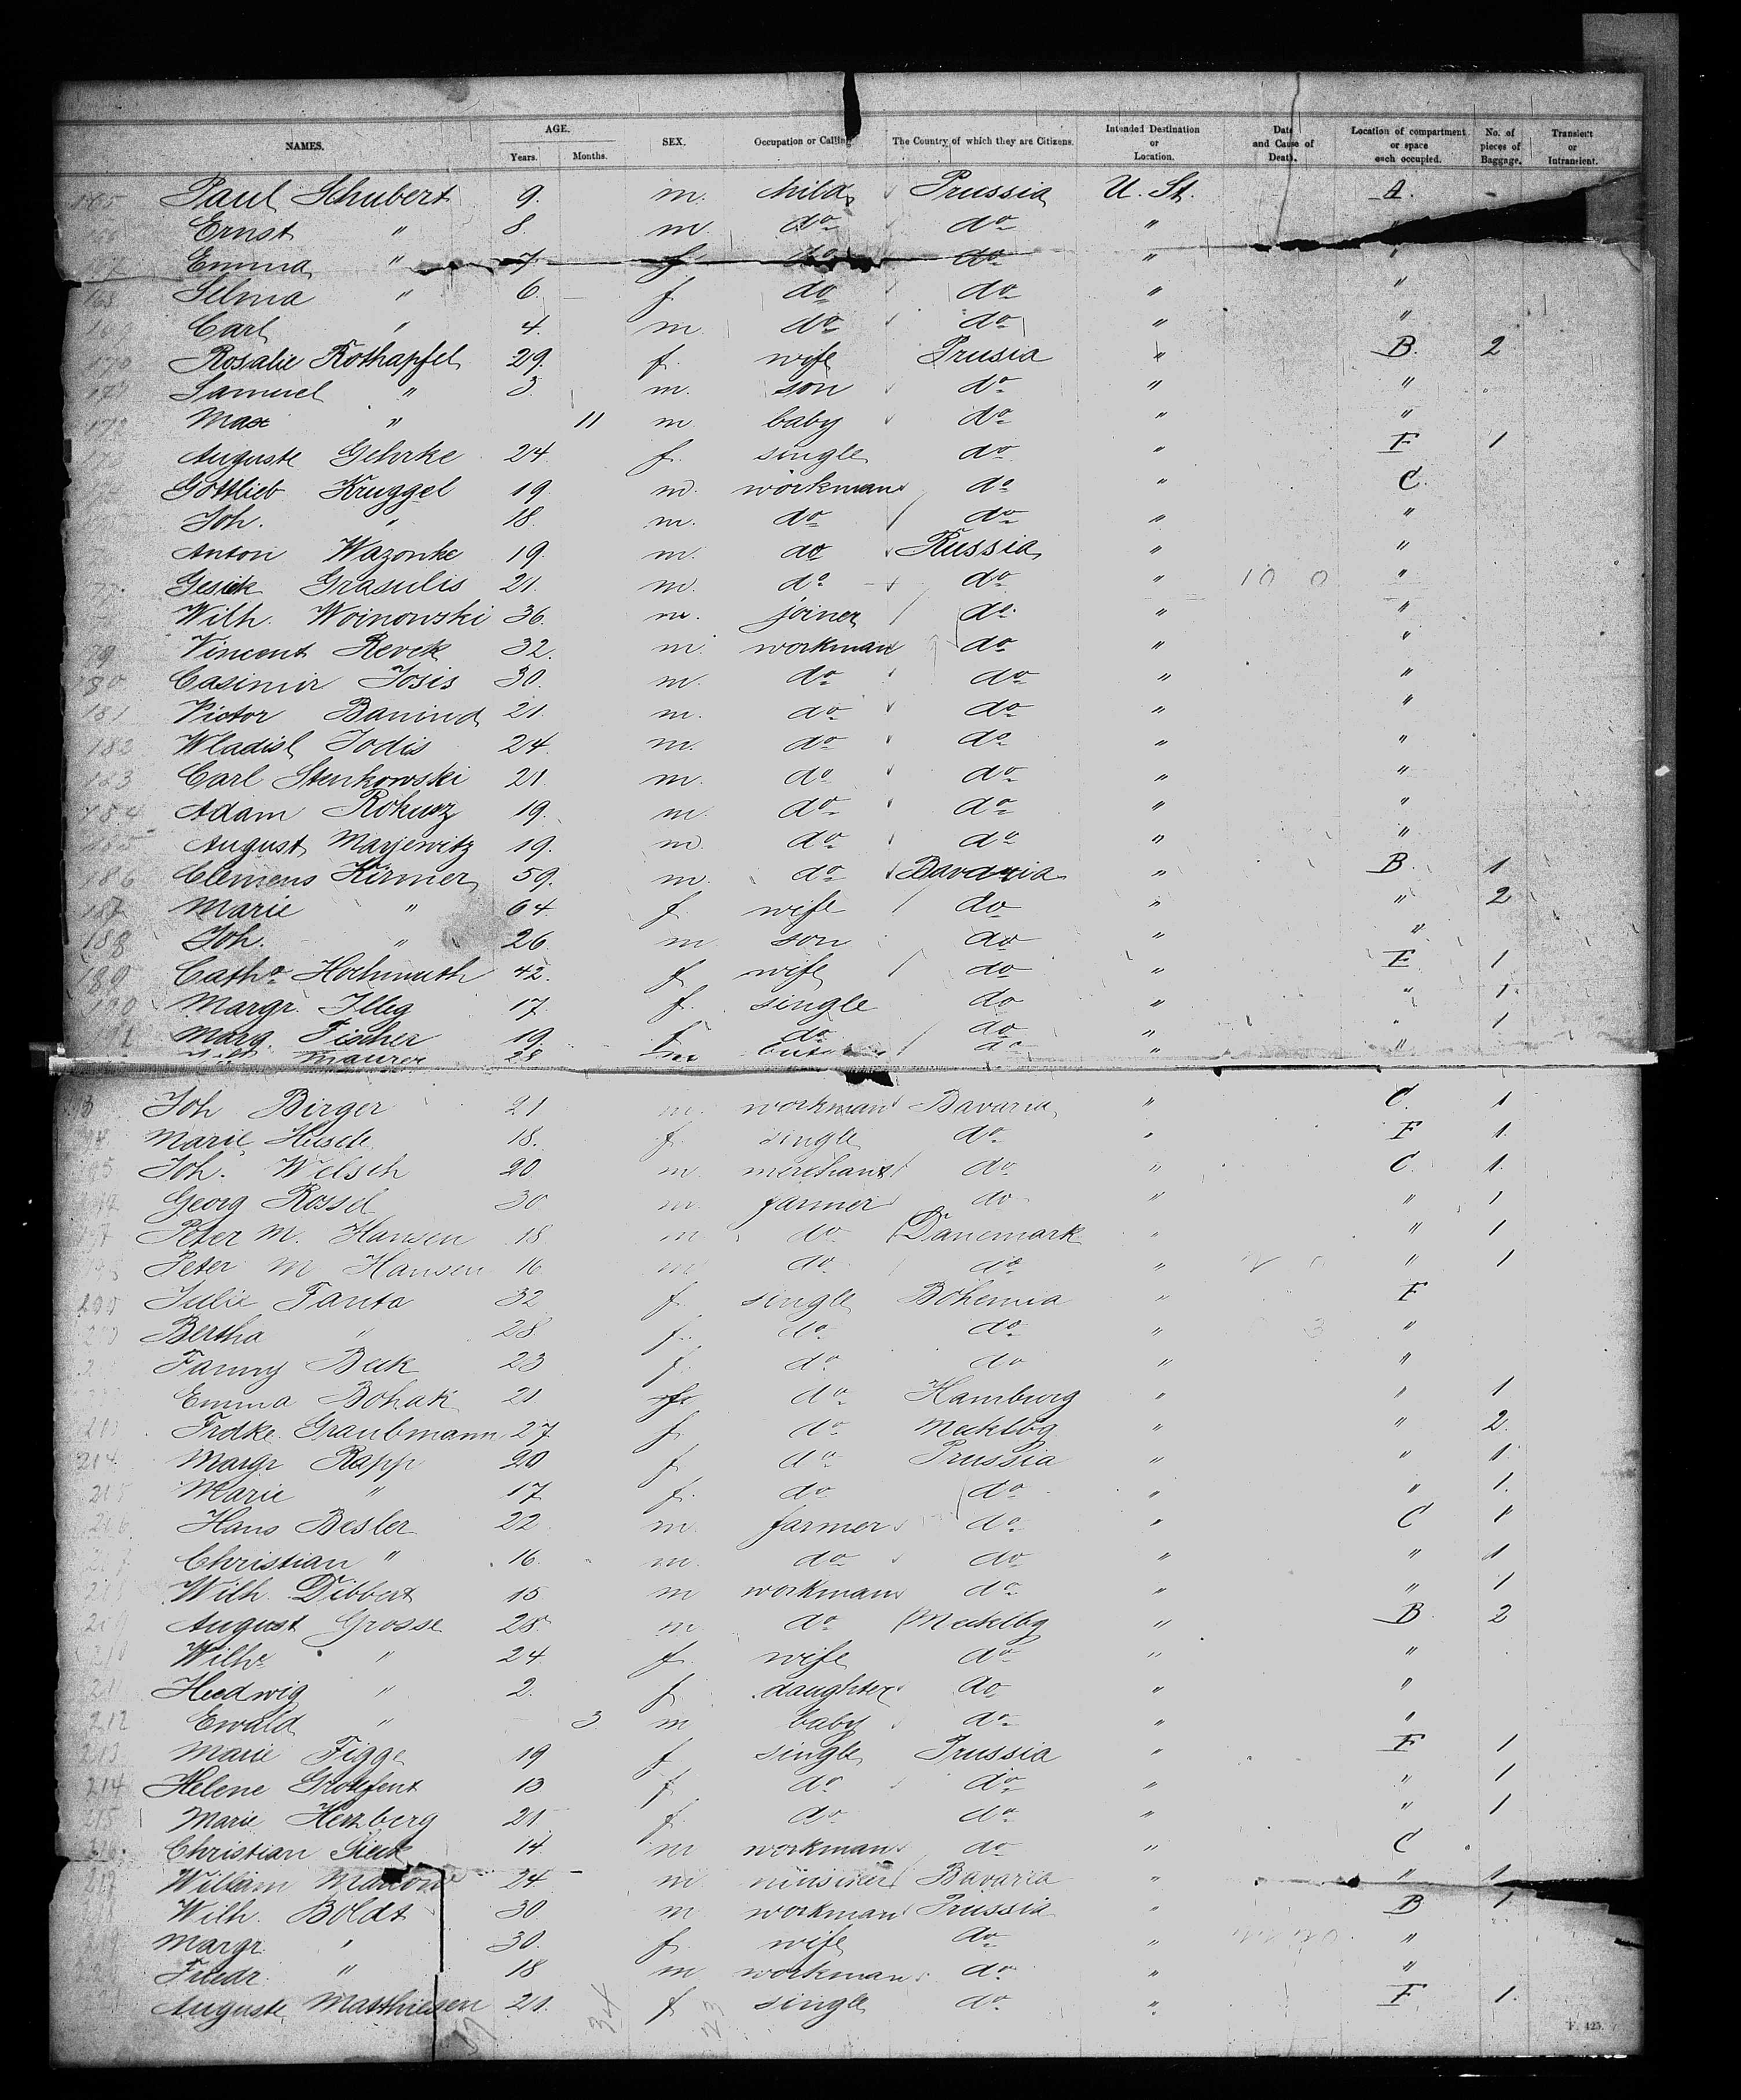 NAMES. AGE. Years. Months. SEX. Occupation or Calling. The Country of which they are Citizens. Intended Destination or Location. Date and Cause of Death. Location of compartment or space each occupied. No. of pieces of Baggage. Transient or Intransient.
165 Paul Schubert 9. m. child Prussia U. St. A.
Ernst " 8. m do do "
Emma " 7 f do do "
168 Selma " 6. f. do do " "
169 Carl " 4. m. do do " "
170 Rosalie Rothapfel 29. f. wife Prusia " B. 2
171 Samuel " 3. m. son do " "
172 Max " 11 m baby do " "
173 Auguste Gehrke 24. f. single do " F 1
Gottlieb Kruggel 19. m. workman do " C.
Joh. " 18. m. do do " "
Anton Wazonke 19. m. do Russia " "
Grasulis 21. m. do do " "
Wilh. Woinowski 36. m. joiner do " "
79 Vincent Revek 32. m. workman do " "
180 Casimir Josis 30. m. do do " "
181 Victor Banind 21. m. do do " "
182 Wladisl Jodis 24. m. do do " "
183 Carl Stenkowski 21. m. do do " "
184 Adam Rokusz 19. m. do do " "
185 August Marjewitz 19. m. do do " "
186 Clemens Kirmer 59. m. do Bavaria " B. 1
187 Marie " 64 f. wife do " " 2
188 Joh. " 26. m son do " "
189 Cath. Hochmuth 42. f wife do " F 1
190 Margr. Illig 17. f. single do " " 1.
191 Marg. Fischer 19. f do do " " 1
Maurer 28 m do " "
Joh Birger 21 m. workman Bavaria " C. 1
Marie 18. f. single do " F 1.
195 Joh. Welsch 20 m merchant do " C. 1.
Georg Rossel 30 m. farmer do " " 1
197 Peter M. Hansen 18 m do Danemark " " 1
Peter M Hansen 16 m do do " " 1
Julie Tanta 32 f. single Bohemia " F
Bertha " 28 f. do do " "
Fanny Bek 23 f. do do " "
Emma Bohak 21 f do Hamburg " " 1
Frdke. Graubmann 27 f do Mecklbg " " 2.
214 Margr Rapp 20 f do Prussia " " 1
215 Marie " 17 f. do do " " 1.
216 Hans Besler 22 m. farmer do " C 1
Christian " 16. m. do do " " 1
Wilh. Dibbert 15 m workman do " " 1
August Grosse 28 m do Mecklbg " B. 2
210 Wilhe " 24 f. wife do " "
211 Hedwig " 2. f daughter do " "
212 Ewald " 3 m baby do " "
213 Marie Figge 19 f single Prussia " F 1
214 Helene Grotefent 13 f do do " " 1
215 Marie Herzberg 21 f. do do " " 1
216. Christian Sieck 14 m workman do " C
217 William 24 m. Bavaria " " 1
Wilh. Boldt 30 m workman Prussia " B 1
219 Margr " 30. f. wife do " "
Friedr. " 18 m workman do " "
Auguste Matthiesen 21. f single do " F 1.